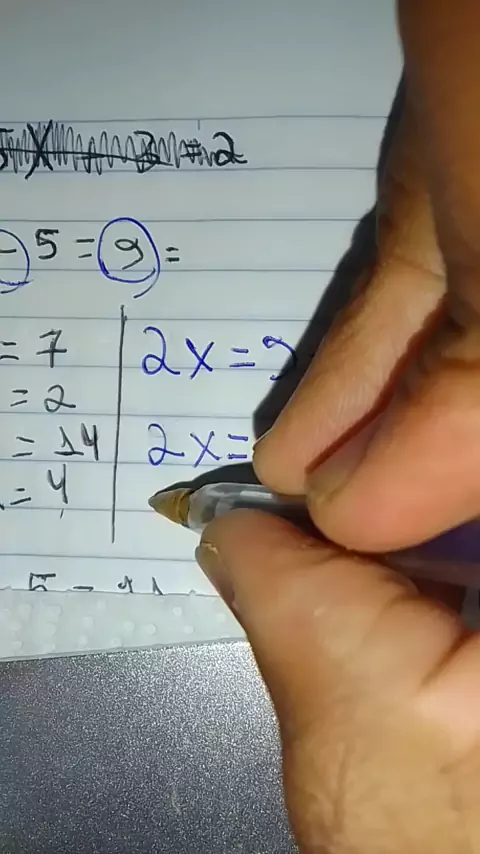 X - 3 = 2
- 5 = 9 =
= 7
= 2
= 14
= 4
2x = 9
2x =
5 =